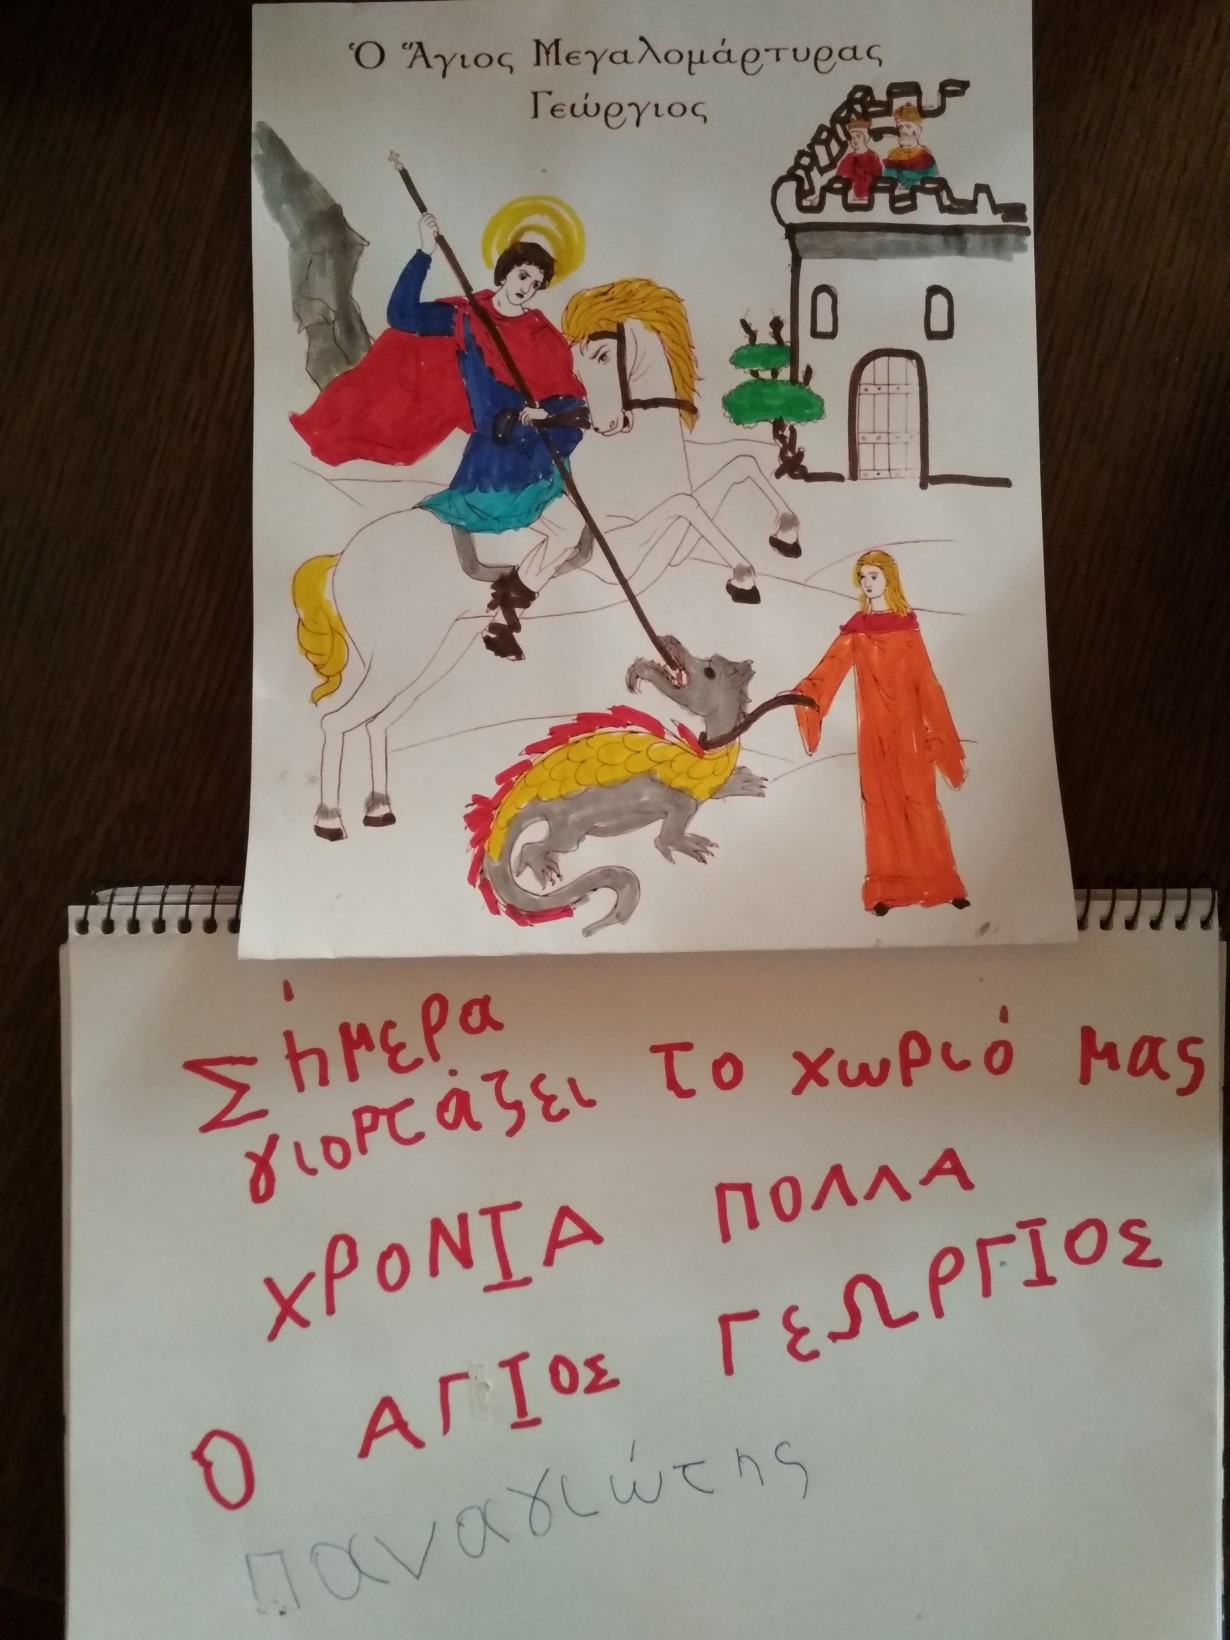 Ὁ Ἅγιος Μεγαλομάρτυρας
Γεώργιος
Σήμερα
γιορτάζει το χωριό μας
ΧΡΟΝΙΑ ΠΟΛΛΑ
Ο ΑΓΙΟΣ ΓΕΩΡΓΙΟΣ
Παναγιώτης